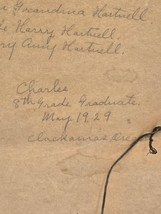 Hartnell.
Harry Hartnell.
Andy Hartnell.
Charles
8th Grade Graduate
May 1929
Clackamas